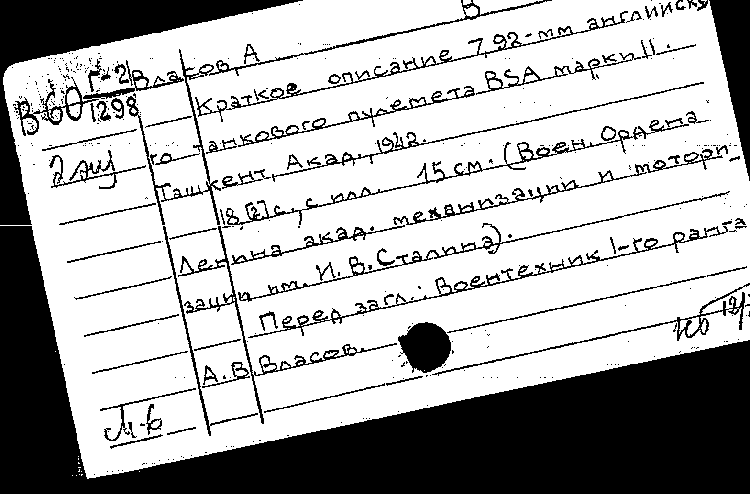 В
Г-2
В60 1298
2 экз
Власов, А
Краткое описание 7,92-мм английско
го танкового пулемета BSA марки II.
Ташкент, Акад., 1942.
18,[2]с., с илл. 15 см. (Воен. Ордена
Ленина акад. механизации и мотори-
зации им. И. В. Сталина).
Перед загл.: Воентехник I-го ранга
А. В. Власов.
М-б